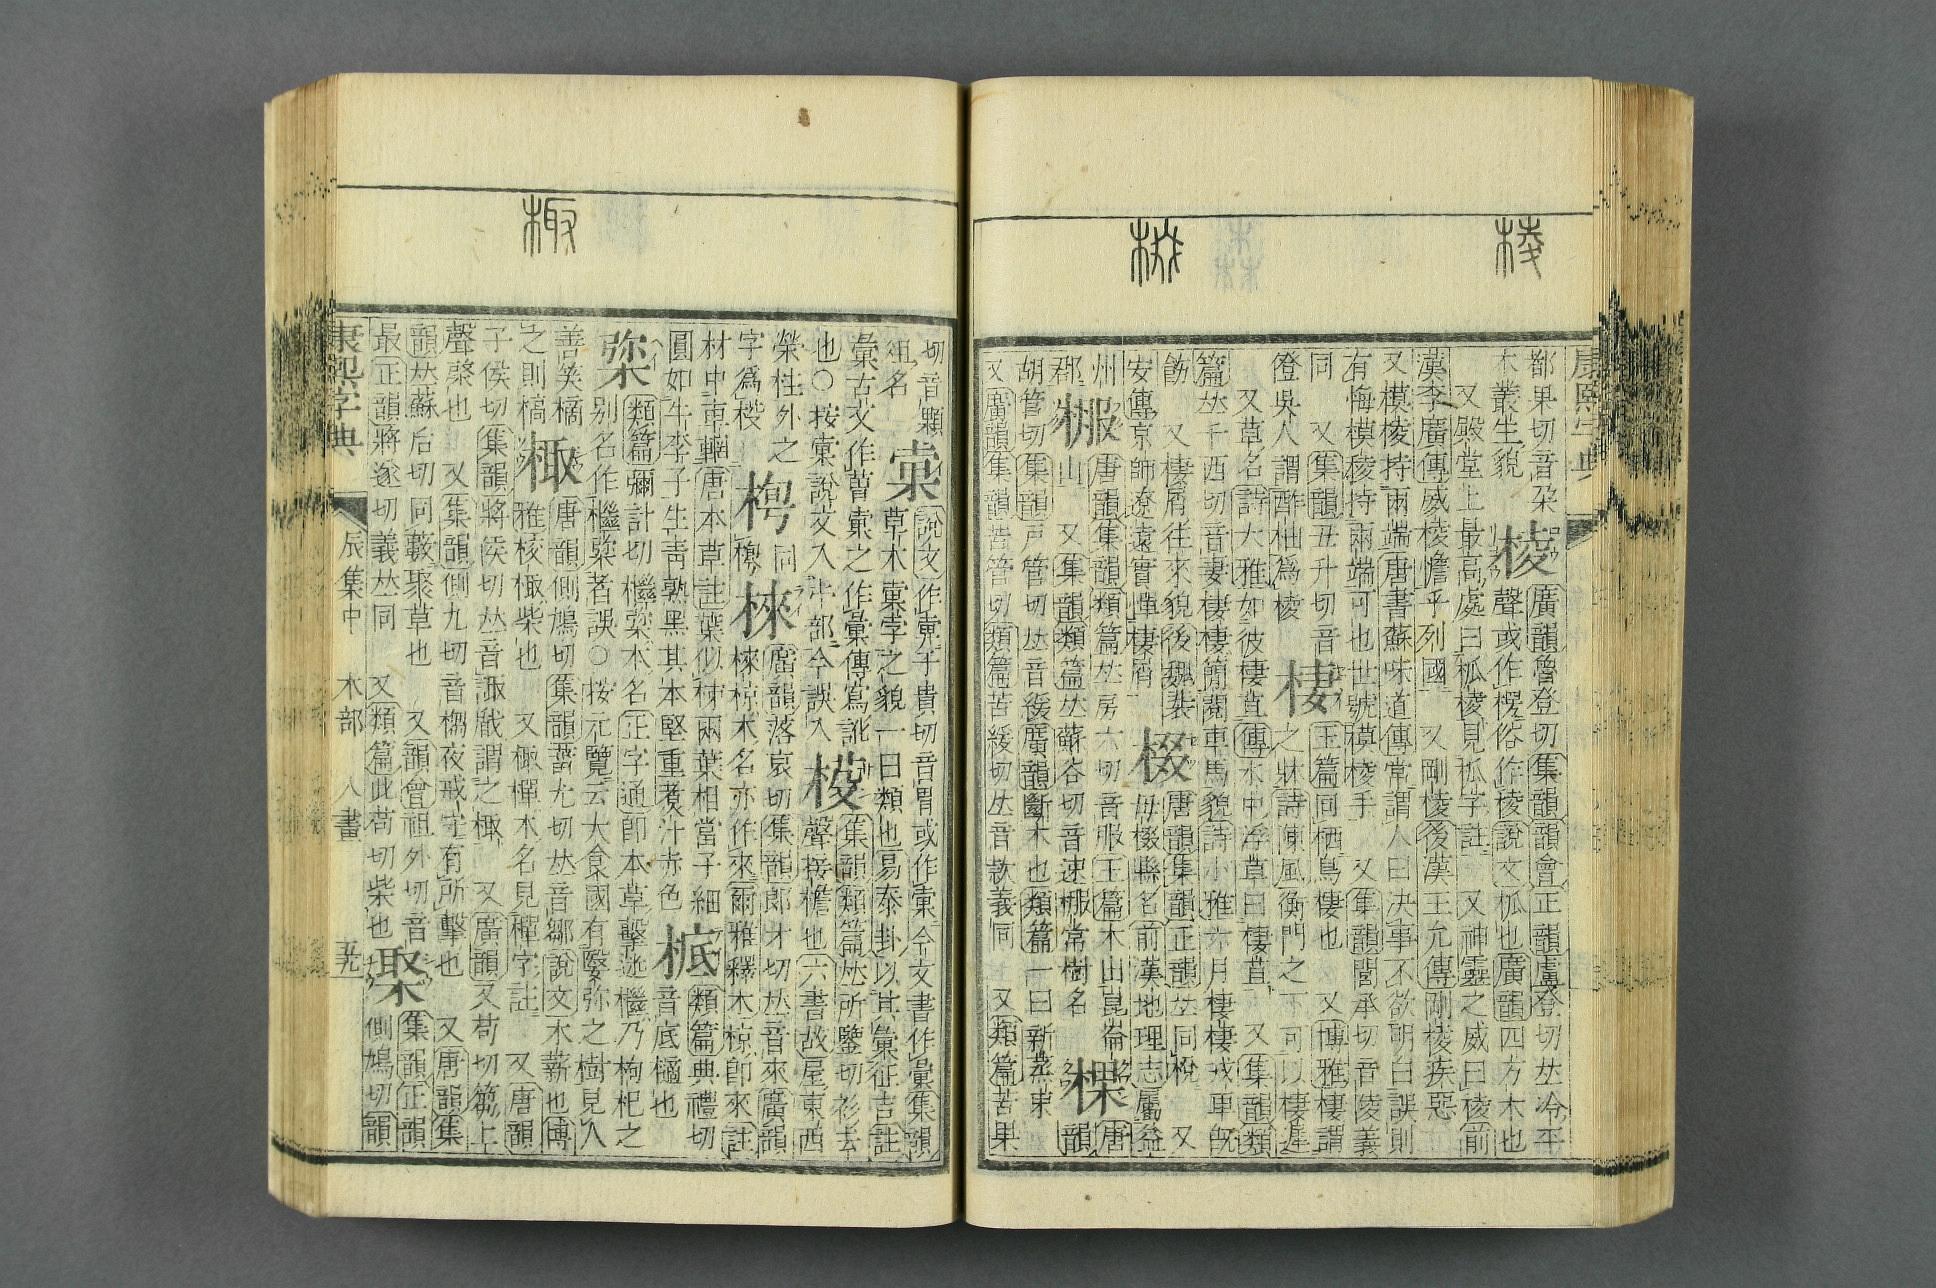 棱
棭
鄱果切音朶
木叢生貌
棱
廣韻魯登切集韻韻會正韻盧登切𠀤冷平
聲或作楞俗作稜說文柧也廣韻四方木也
又殿堂上最高處曰柧棱見柧字註 又神靈之威曰棱前
漢李廣傳威棱憺乎列國 又剛棱後漢王允傳剛棱疾惡
又模棱持兩端唐書蘇味道傳常謂人曰決事不欲明白誤則
有悔模棱持兩端可也世號模棱手 又集韻閭承切音陵義
同 又集韻丑升切音
僜吳人謂酢柚爲棱
棲
玉篇同栖鳥棲也 又博雅棲謂
之牀詩陳風衡門之下可以棲遲
又草名詩大雅如彼棲苴傳水中浮草曰棲苴 又集韻類
篇𠀤千西切音妻棲棲簡閱車馬貌詩小雅六月棲棲戎車旣
飭 又棲屑往來貌後魏裴
安傳京師遼遠實憚棲屑
棳
唐韻集韻正韻𠀤同梲 又
毋棳縣名前漢地理志屬益
州
郡
棴
唐韻集韻類篇𠀤房六切音服玉篇木出崑崙
山 又集韻類篇𠀤蘇谷切音速棴常樹名
棵
唐
韻
胡管切集韻戸管切𠀤音緩廣韻斷木也類篇一曰新蒸束
又廣韻集韻苦管切類篇苦緩切𠀤音款義同 又類篇苦果
康熙字典
棷
切音顆
俎名
㯻
說文作㯻于貴切音胃或作㯻今文書作彙集韻
草木㯻孛之貌一曰類也易泰卦以其彙征吉註
彙古文作㬥㯻之作彙傳寫訛
也○按㯻說文入𣎵部今誤入
棧
集韻類篇𠀤所鑒切衫去
聲接檐也六書故屋東西
榮柱外之
字爲棧
㭲
同
棶
廣韻落哀切集韻郎才切𠀤音來廣韻
棶椋木名亦作來爾雅釋木椋卽來註
材中車輞唐本草註葉似柹兩葉相當子細
圓如牛李子生靑熟黑其木堅重煑汁赤色
㭽
類篇典禮切
音底橘也
㮆
類篇彌計切檵㮆木名正字通卽本草㩌迷檵乃枸杞之
別名作檵㮆者誤○按元覽云大食國有㩌弥之樹見人
善笑橘
之則槁
棷
唐韻側鳩切集韻甾尤切𠀤音鄒說文木薪也博
雅枝棷柴也 又棷樿木名見樿字註 又唐韻
子侯切集韻將侯切𠀤音諏戲謂之棷 又廣韻又苟切籔上
聲㯻也 又集韻側九切音㮴夜戒守有所擊也 又唐韻集
韻𠀤蘇后切同藪聚草也 又韻會祖外切音
最正韻將遂切義𠀤同 又類篇此苟切柴也
棸
集韻正韻
側鳩切韻
康熙字典
辰集中 木部 八畫
五九